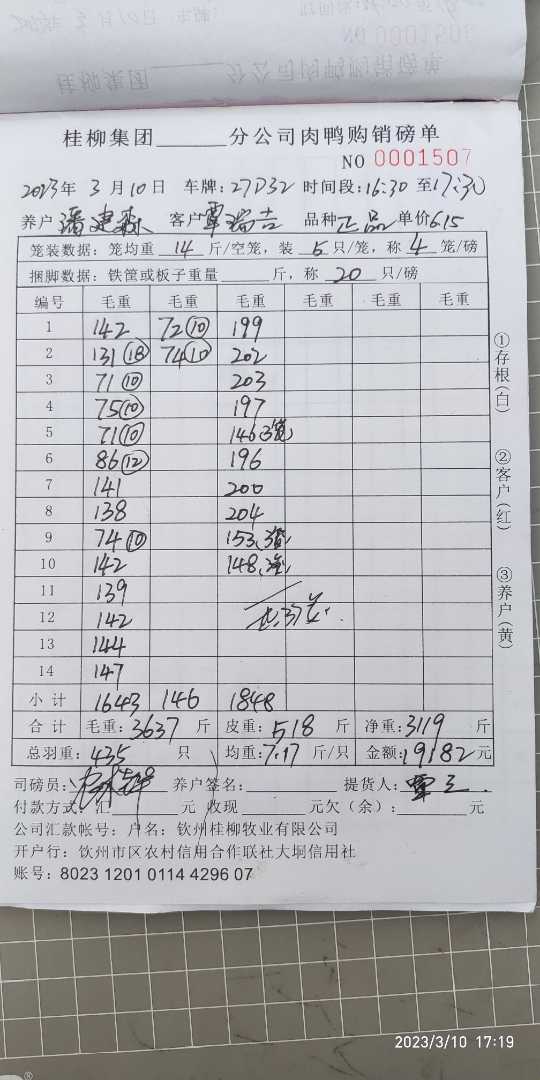 桂柳集团______分公司肉鸭购销磅单
NO 0001507
2023年 3 月 10 日 车牌: 27D32 时间段: 16:30 至 17:30
养户 潘建森 客户 覃瑞吉 品种 正品 单价 6.15
笼装数据: 笼均重 14 斤/空笼, 装 5 只/笼, 称 4 笼/磅
捆脚数据: 铁筐或板子重量______斤, 称 20 只/磅
编号 毛重 毛重 毛重 毛重 毛重 毛重
1 142 72⑩ 199
2 131⑱ 74⑩ 202
3 71⑩ 203
4 75⑩ 197
5 71⑩ 146 3笼
6 86⑫ 196
7 141 200
8 138 204
9 74⑩ 153
10 142 148
11 139
12 142 共37笼
13 144
14 147
小计 1643 146 1848
合计 毛重: 3637 斤 皮重: 518 斤 净重: 3119 斤
总羽重: 435 只 均重: 7.17 斤/只 金额: 19182 元
司磅员: 养户签名: 提货人: 覃
付款方式: 汇______元 收现______元欠(余):______元
公司汇款帐号: 户名: 钦州桂柳牧业有限公司
开户行: 钦州市区农村信用合作联社大垌信用社
账号: 8023 1201 0114 4296 07
①存根(白)
②客户(红)
③养户(黄)
2023/3/10 17:19